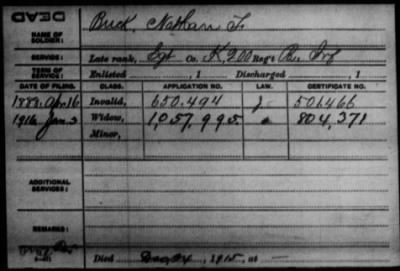 DEAD
NAME OF SOLDIER: Buck, Nathan F.
SERVICE: Late rank, Sgt Co. K, 200 Reg't Pa. Inf
TERM OF SERVICE: Enlisted , 1 Discharged , 1
DATE OF FILING. CLASS. APPLICATION NO. LAW. CERTIFICATE NO.
1888, Apr. 16 Invalid, 650.494 501466
1916 Jan 3 Widow, 1,057,995 804,371
Minor,
ADDITIONAL SERVICES:
REMARKS:
Died , 1915, at —